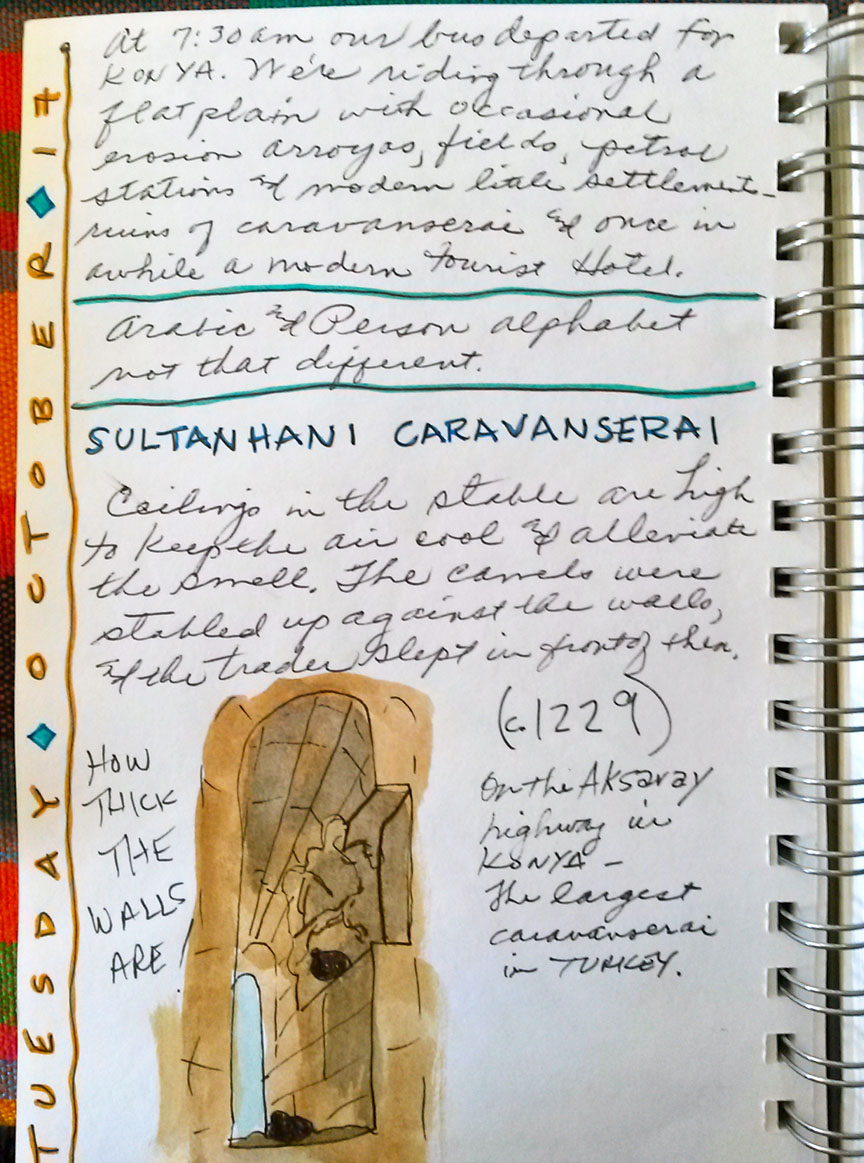 TUESDAY ◆ OCTOBER ◆ 17
At 7:30 am our bus departed for
KONYA. We're riding through a
flat plain with occasional
erosion arroyos, fields, petrol
stations & modern little settlements -
ruins of caravanserai & once in
awhile a modern Tourist Hotel.
Arabic & Person alphabet
not that different.
SULTANHANI CARAVANSERAI
Ceilings in the stable are high
to keep the air cool & alleviate
the smell. The camels were
stabled up against the walls,
& the trader slept in front of them.
HOW
THICK
THE
WALLS
ARE!
(c. 1229)
On the Aksaray
highway in
KONYA –
The largest
caravanserai
in TURKEY.